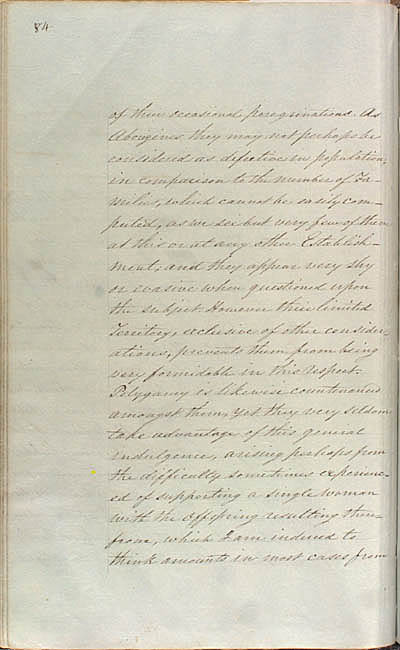 84
of their occasional peregrinations. As
Aborigines they may not perhaps be
considered as defective in population,
in comparison to the number of Fa-
milies, which cannot be easily com-
puted, as we see but very few of them
at this or at any other Establish-
ment, and they appear very shy
or evasive when questioned upon
the subject. However their limited
Territory, exclusive of other consider-
ations, prevents them from being
very formidable in this respect.
Polygamy is likewise countenanced
amongst them, Yet they very seldom
take advantage of this general
indulgence, arising perhaps from
the difficulty sometimes experienc-
ed of supporting a single woman
with the offspring resulting there-
from, which I am induced to
think amounts in most cases from